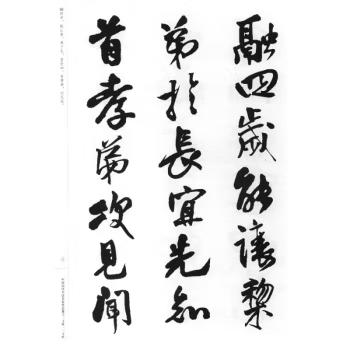 融四歲能讓梨
弟於長宜先知
首孝弟次見聞